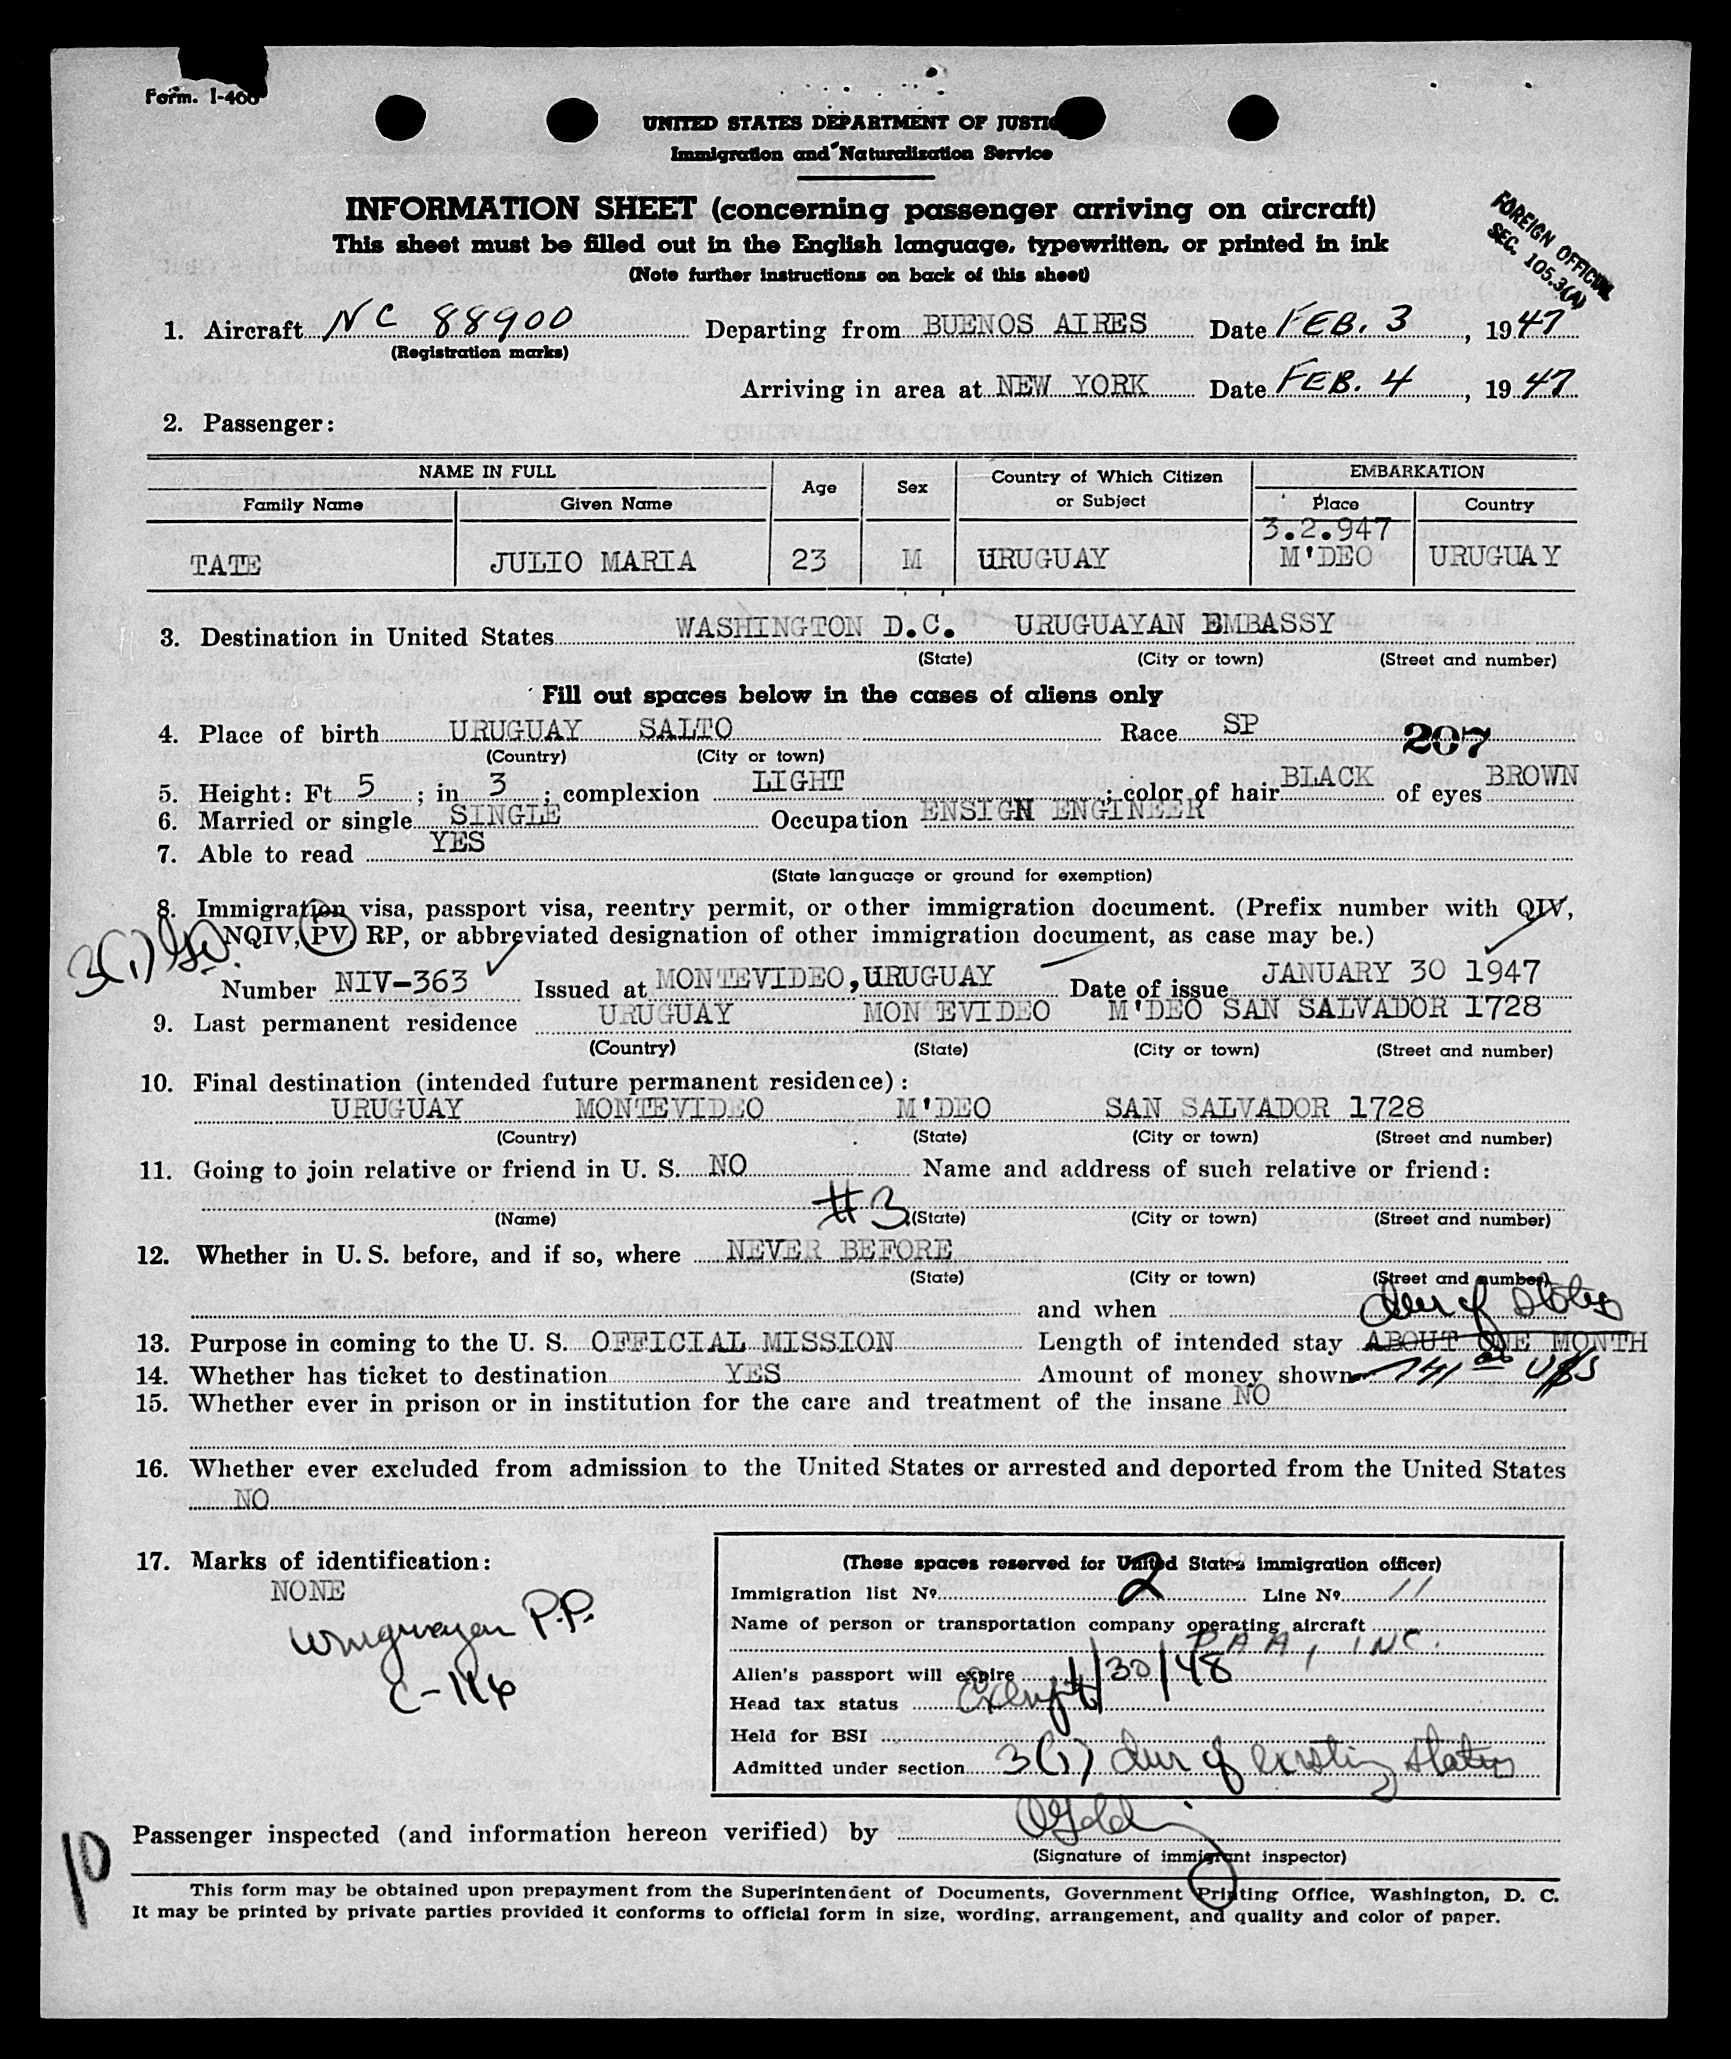 Form. I-466
UNITED STATES DEPARTMENT OF JUSTIC
Immigration and Naturalization Service
INFORMATION SHEET (concerning passenger arriving on aircraft)
This sheet must be filled out in the English language, typewritten, or printed in ink
(Note further instructions on back of this sheet)
FOREIGN OFFICIAL
SEC. 105.3(A)
1. Aircraft NC 88900 Departing from BUENOS AIRES Date FEB. 3, 1947
(Registration marks)
Arriving in area at NEW YORK Date FEB. 4, 1947
2. Passenger:
NAME IN FULL Age Sex Country of Which Citizen or Subject EMBARKATION
Family Name Given Name Place Country
3.2.947
TATE JULIO MARIA 23 M URUGUAY M'DEO URUGUAY
3. Destination in United States WASHINGTON D.C. URUGUAYAN EMBASSY
(State) (City or town) (Street and number)
Fill out spaces below in the cases of aliens only
4. Place of birth URUGUAY SALTO Race SP 207
(Country) (City or town)
5. Height: Ft 5 ; in 3 ; complexion LIGHT ; color of hair BLACK of eyes BROWN
6. Married or single SINGLE Occupation ENSIGN ENGINEER
7. Able to read YES
(State language or ground for exemption)
8. Immigration visa, passport visa, reentry permit, or other immigration document. (Prefix number with QIV,
3(1) NQIV, PV, RP, or abbreviated designation of other immigration document, as case may be.)
Number NIV-363 Issued at MONTEVIDEO, URUGUAY Date of issue JANUARY 30 1947
9. Last permanent residence URUGUAY MONTEVIDEO M'DEO SAN SALVADOR 1728
(Country) (State) (City or town) (Street and number)
10. Final destination (intended future permanent residence):
URUGUAY MONTEVIDEO M'DEO SAN SALVADOR 1728
(Country) (State) (City or town) (Street and number)
11. Going to join relative or friend in U. S. NO Name and address of such relative or friend:
#3
(Name) (State) (City or town) (Street and number)
12. Whether in U. S. before, and if so, where NEVER BEFORE
(State) (City or town) (Street and number)
and when dur of status
13. Purpose in coming to the U. S. OFFICIAL MISSION Length of intended stay ABOUT ONE MONTH
14. Whether has ticket to destination YES Amount of money shown 741 00 U$S
15. Whether ever in prison or in institution for the care and treatment of the insane NO
16. Whether ever excluded from admission to the United States or arrested and deported from the United States
NO
17. Marks of identification:
NONE
Uruguayan P.P.
C-116
(These spaces reserved for United States immigration officer)
Immigration list No. 2 Line No. 11
Name of person or transportation company operating aircraft
PAA, INC.
Alien's passport will expire 1/30/48
Head tax status Exempt
Held for BSI
Admitted under section 3(1) dur of existing status
Passenger inspected (and information hereon verified) by
(Signature of immigrant inspector)
10
This form may be obtained upon prepayment from the Superintendent of Documents, Government Printing Office, Washington, D. C.
It may be printed by private parties provided it conforms to official form in size, wording, arrangement, and quality and color of paper.